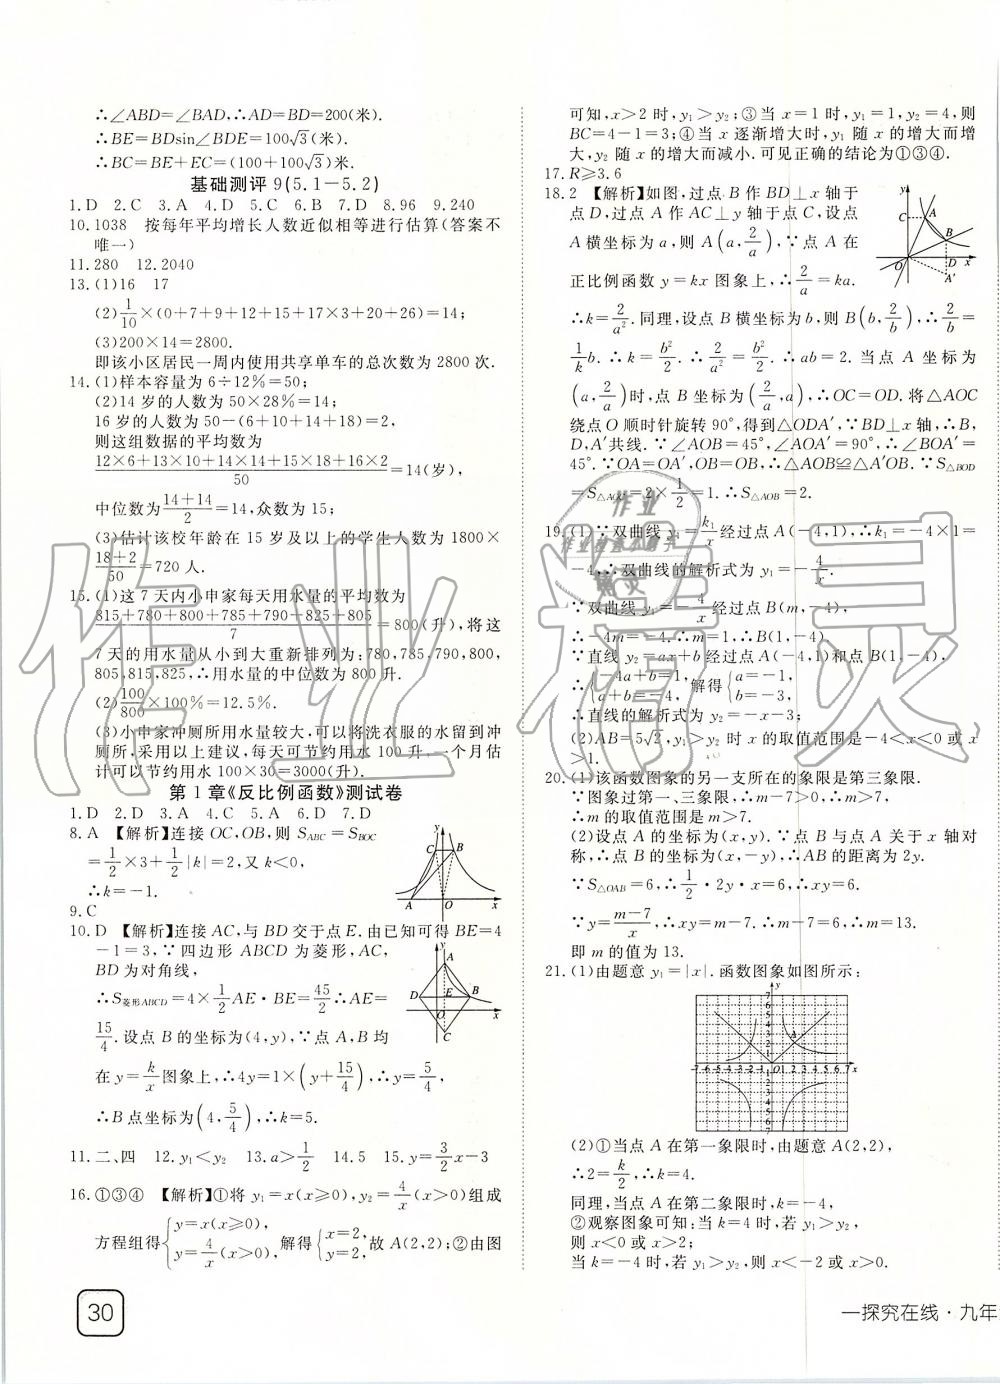 ∴∠ABD=∠BAD,∴AD=BD=200(米).
∴BE=BDsin∠BDE=100√3(米).
∴BC=BE+EC=(100+100√3)米.
基础测评 9(5.1-5.2)
1.D 2.C 3.A 4.D 5.C 6.D 7.D 8.96 9.240
10.1038 按每年平均增长人数近似相等进行估算(答案不
唯一)
11.280 12.2040
13.(1)16 17
(2)1/10×(0+7+9+12+15+17×3+20+26)=14;
(3)200×14=2800.
即该小区居民一周内使用共享单车的总次数为 2800 次.
14.(1)样本容量为 6÷12%=50;
(2)14 岁的人数为 50×28%=14;
16 岁的人数为 50-(6+10+14+18)=2,
则这组数据的平均数为
(12×6+13×10+14×14+15×18+16×2)/50=14(岁),
中位数为(14+14)/2=14,众数为 15;
(3)估计该校年龄在 15 岁及以上的学生人数为 1800×
(18+2)/50=720 人.
15.(1)这 7 天内小申家每天用水量的平均数为
(815+780+800+785+790+825+805)/7=800(升),将这
7 天的用水量从小到大重新排列为:780,785,790,800,
805,815,825,∴用水量的中位数为 800 升.
(2)100/800×100%=12.5%.
(3)小申家冲厕所用水量较大,可以将洗衣服的水留到冲
厕所,采用以上建议,每天可节约用水 100 升,一个月估
计可以节约用水 100×30=3000(升).
第 1 章《反比例函数》测试卷
1.D 2.D 3.A 4.C 5.A 6.D 7.D
8.A 【解析】连接 OC,OB,则 S_ABC=S_BOC
=1/2×3+1/2|k|=2,又 k<0,
∴k=-1.
9.C
10.D 【解析】连接 AC,与 BD 交于点 E.由已知可得 BE=4
-1=3,∵四边形 ABCD 为菱形,AC,
BD 为对角线,
∴S菱形ABCD=4×1/2AE·BE=45/2∴AE=
15/4.设点 B 的坐标为(4,y),∵点 A,B 均
在 y=k/x图象上,∴4y=1×(y+15/4),
∴B 点坐标为(4,5/4),∴k=5.
11.二、四 12.y₁<y₂ 13.a>1/2 14.5 15.y=3/2x-3
16.①③④ 【解析】①将 y₁=x(x≥0),y₂=4/x(x>0)组成
方程组得{y=x(x≥0) y=4/x(x>0),解得{x=2, y=2,故 A(2,2);②由图
可知,x>2 时,y₁>y₂;③当 x=1 时,y₁=1,y₂=4,则
BC=4-1=3;④当 x 逐渐增大时,y₁ 随 x 的增大而增
大,y₂ 随 x 的增大而减小.可见正确的结论为①③④.
17.R≥3.6
18.2 【解析】如图,过点 B 作 BD⊥x 轴于
点 D,过点 A 作 AC⊥y 轴于点 C,设点
A 横坐标为 a,则 A(a,2/a),∵点 A 在
正比例函数 y=kx 图象上,∴2/a=ka.
∴k=2/a².同理,设点 B 横坐标为 b,则 B(b,2/b),∴2/b=
1/k b.∴k=b²/2.∴2/a²=b²/2.∴ab=2.当点 A 坐标为
(a,2/a)时,点 B 坐标为(2/a,a),∴OC=OD.将△AOC
绕点 O 顺时针旋转 90°,得到△ODA′,∵BD⊥x 轴,∴B,
D,A′共线.∵∠AOB=45°,∠AOA′=90°,∴∠BOA′=
45°.∵OA=OA′,OB=OB,∴△AOB≌△A′OB.∵S△BOD
=S△AOC=2×1/2=1.∴S△AOB=2.
19.(1)∵双曲线 y₁=k₁/x经过点 A(-4,1),∴k₁=-4×1=
-4,∴双曲线的解析式为 y₁=-4/x.
∵双曲线 y₁=-4/x经过点 B(m,-4),
∴-4m=-4.∴m=1.∴B(1,-4).
∵直线 y₂=ax+b 经过点 A(-4,1)和点 B(1,-4),
∴{-4a+b=1, a+b=-4,解得{a=-1, b=-3,
∴直线的解析式为 y₂=-x-3;
(2)AB=5√2,y₁>y₂ 时 x 的取值范围是-4<x<0 或 x
>1.
20.(1)该函数图象的另一支所在的象限是第三象限.
∵图象过第一、三象限,∴m-7>0,∴m>7,
∴m 的取值范围是 m>7.
(2)设点 A 的坐标为(x,y).∵点 B 与点 A 关于 x 轴对
称,∴点 B 坐标为(x,-y),∴AB 的距离为 2y.
∵S△OAB=6,∴1/2·2y·x=6,∴xy=6.
∵y=(m-7)/x,∴xy=m-7.∴m-7=6.∴m=13.
即 m 的值为 13.
21.(1)由题意 y₁=|x|.函数图象如图所示:
(2)①当点 A 在第一象限时,由题意 A(2,2),
∴2=k/2,∴k=4.
同理,当点 A 在第二象限时,k=-4,
②观察图象可知:当 k=4 时,若 y₁>y₂,
则 x<0 或 x>2;
当 k=-4 时,若 y₁>y₂,则 x<-2 或 x>0.
30
一探究在线·九年
作业精灵